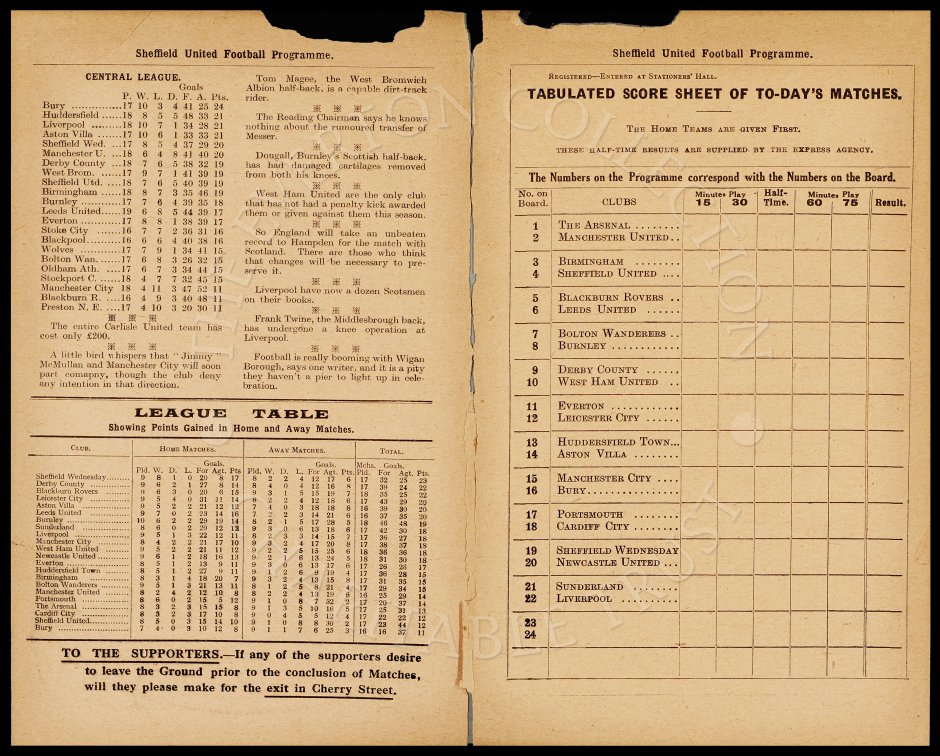 Sheffield United Football Programme.
CENTRAL LEAGUE.
Goals
P. W. L. D. F. A. Pts.
Bury ...............17 10 3 4 41 25 24
Huddersfield ......18 8 5 5 48 33 21
Liverpool ..........18 10 7 1 34 28 21
Aston Villa .......17 10 6 1 33 33 21
Sheffield Wed. ...17 8 5 4 37 29 20
Manchester U. ...18 6 4 8 41 40 20
Derby County ...18 7 6 5 38 32 19
West Brom. ......17 9 7 1 41 39 19
Sheffield Utd. ....18 7 6 5 40 39 19
Birmingham ......18 8 7 3 35 46 19
Burnley ............17 7 6 4 39 35 18
Leeds United......19 6 8 5 44 39 17
Everton ............17 8 8 1 38 39 17
Stoke City .......16 7 7 2 36 31 16
Blackpool...........16 6 6 4 40 38 16
Wolves ............17 7 9 1 34 41 15
Bolton Wan. .....17 6 8 3 26 32 15
Oldham Ath. ....17 6 7 3 34 44 15
Stockport C. ......18 4 7 7 32 45 15
Manchester City 18 4 11 3 47 52 11
Blackburn R. ....16 4 9 3 40 48 11
Preston N. E. ....17 4 10 3 20 30 11
The entire Carlisle United team has
cost only £200.
A little bird whispers that "Jimmy"
McMullan and Manchester City will soon
part comapny, though the club deny
any intention in that direction.
Tom Magee, the West Bromwich
Albion half-back, is a capable dirt-track
rider.
The Reading Chairman says he knows
nothing about the rumoured transfer of
Messer.
Dougall, Burnley's Scottish half-back,
has had damaged cartilages removed
from both his knees.
West Ham United are the only club
that has not had a penalty kick awarded
them or given against them this season.
So England will take an unbeaten
record to Hampden for the match with
Scotland. There are those who think
that changes will be necessary to pre-
serve it.
Liverpool have now a dozen Scotsmen
on their books.
Frank Twine, the Middlesbrough back,
has undergone a knee operation at
Liverpool.
Football is really booming with Wigan
Borough, says one writer, and it is a pity
they haven't a pier to light up in cele-
bration.
LEAGUE TABLE
Showing Points Gained in Home and Away Matches.
CLUB. HOME MATCHES. AWAY MATCHES. TOTAL.
Goals. Goals. Mchs. Goals.
Pld. W. D. L. For Agt. Pts Pld. W. D. L. For Agt. Pts. Pld. For Agt. Pts.
Sheffield Wednesday........ 9 8 1 0 20 8 17 8 2 2 4 12 17 6 17 32 25 23
Derby County ............... 9 6 2 1 27 8 14 8 4 0 4 12 16 8 17 39 24 22
Blackburn Rovers ........... 9 6 3 0 20 6 15 9 3 1 5 15 19 7 18 35 25 22
Leicester City ............... 9 5 4 0 31 11 14 8 2 2 4 12 18 6 17 43 29 20
Aston Villa .................. 9 5 2 2 21 12 12 7 4 0 3 18 18 8 16 39 30 20
Leeds United ................ 9 7 0 2 23 14 16 7 2 2 3 14 21 6 16 37 35 20
Burnley ...................... 10 6 2 2 29 19 14 8 2 1 5 17 28 5 18 46 48 19
Sunderland .................. 8 6 0 2 29 12 12 9 3 0 6 13 18 6 17 42 30 18
Liverpool .................... 9 5 1 3 22 12 11 8 2 3 3 14 15 7 17 36 27 18
Manchester City ............ 8 4 2 2 21 17 10 9 3 2 4 17 20 8 17 38 37 18
West Ham United .......... 9 5 2 2 21 11 12 9 2 2 5 15 25 6 18 36 36 18
Newcastle United ........... 9 6 1 2 18 16 13 9 2 1 6 13 24 5 18 31 30 18
Everton ...................... 8 5 1 2 13 9 11 9 3 0 6 13 17 6 17 26 26 17
Huddersfield Town ......... 8 5 1 2 27 9 11 9 1 2 6 9 19 4 17 36 28 15
Birmingham ................. 8 3 1 4 18 20 7 9 3 2 4 13 15 8 17 31 35 15
Bolton Wanderers .......... 9 5 1 3 21 13 11 8 1 2 5 8 21 4 17 29 34 15
Manchester United ......... 8 2 4 2 12 10 8 8 2 2 4 13 19 6 16 25 29 14
Portsmouth .................. 8 6 0 2 15 5 12 9 1 0 8 7 32 2 17 20 37 14
The Arsenal ................. 8 3 2 3 15 15 8 9 1 3 5 10 16 5 17 25 31 13
Cardiff City .................. 8 3 2 3 17 10 8 9 0 4 5 5 12 4 17 22 22 12
Sheffield United............. 8 5 0 3 15 14 10 9 1 0 8 8 30 2 17 23 44 12
Bury .......................... 7 4 0 3 10 12 8 9 1 1 7 6 25 3 16 16 37 11
TO THE SUPPORTERS.—If any of the supporters desire
to leave the Ground prior to the conclusion of Matches,
will they please make for the exit in Cherry Street.
Sheffield United Football Programme.
REGISTERED—ENTERED AT STATIONERS' HALL.
TABULATED SCORE SHEET OF TO-DAY'S MATCHES.
THE HOME TEAMS ARE GIVEN FIRST.
THESE HALF-TIME RESULTS ARE SUPPLIED BY THE EXPRESS AGENCY.
The Numbers on the Programme correspond with the Numbers on the Board.
No. on Board. CLUBS Minutes Play 15 30 Half-Time. Minutes Play 60 75 Result.
1 THE ARSENAL ........
2 MANCHESTER UNITED..
3 BIRMINGHAM ........
4 SHEFFIELD UNITED ....
5 BLACKBURN ROVERS ..
6 LEEDS UNITED ......
7 BOLTON WANDERERS ..
8 BURNLEY ............
9 DERBY COUNTY ......
10 WEST HAM UNITED ..
11 EVERTON ............
12 LEICESTER CITY ......
13 HUDDERSFIELD TOWN...
14 ASTON VILLA ........
15 MANCHESTER CITY ....
16 BURY................
17 PORTSMOUTH ........
18 CARDIFF CITY ........
19 SHEFFIELD WEDNESDAY
20 NEWCASTLE UNITED ...
21 SUNDERLAND .........
22 LIVERPOOL .........
23
24